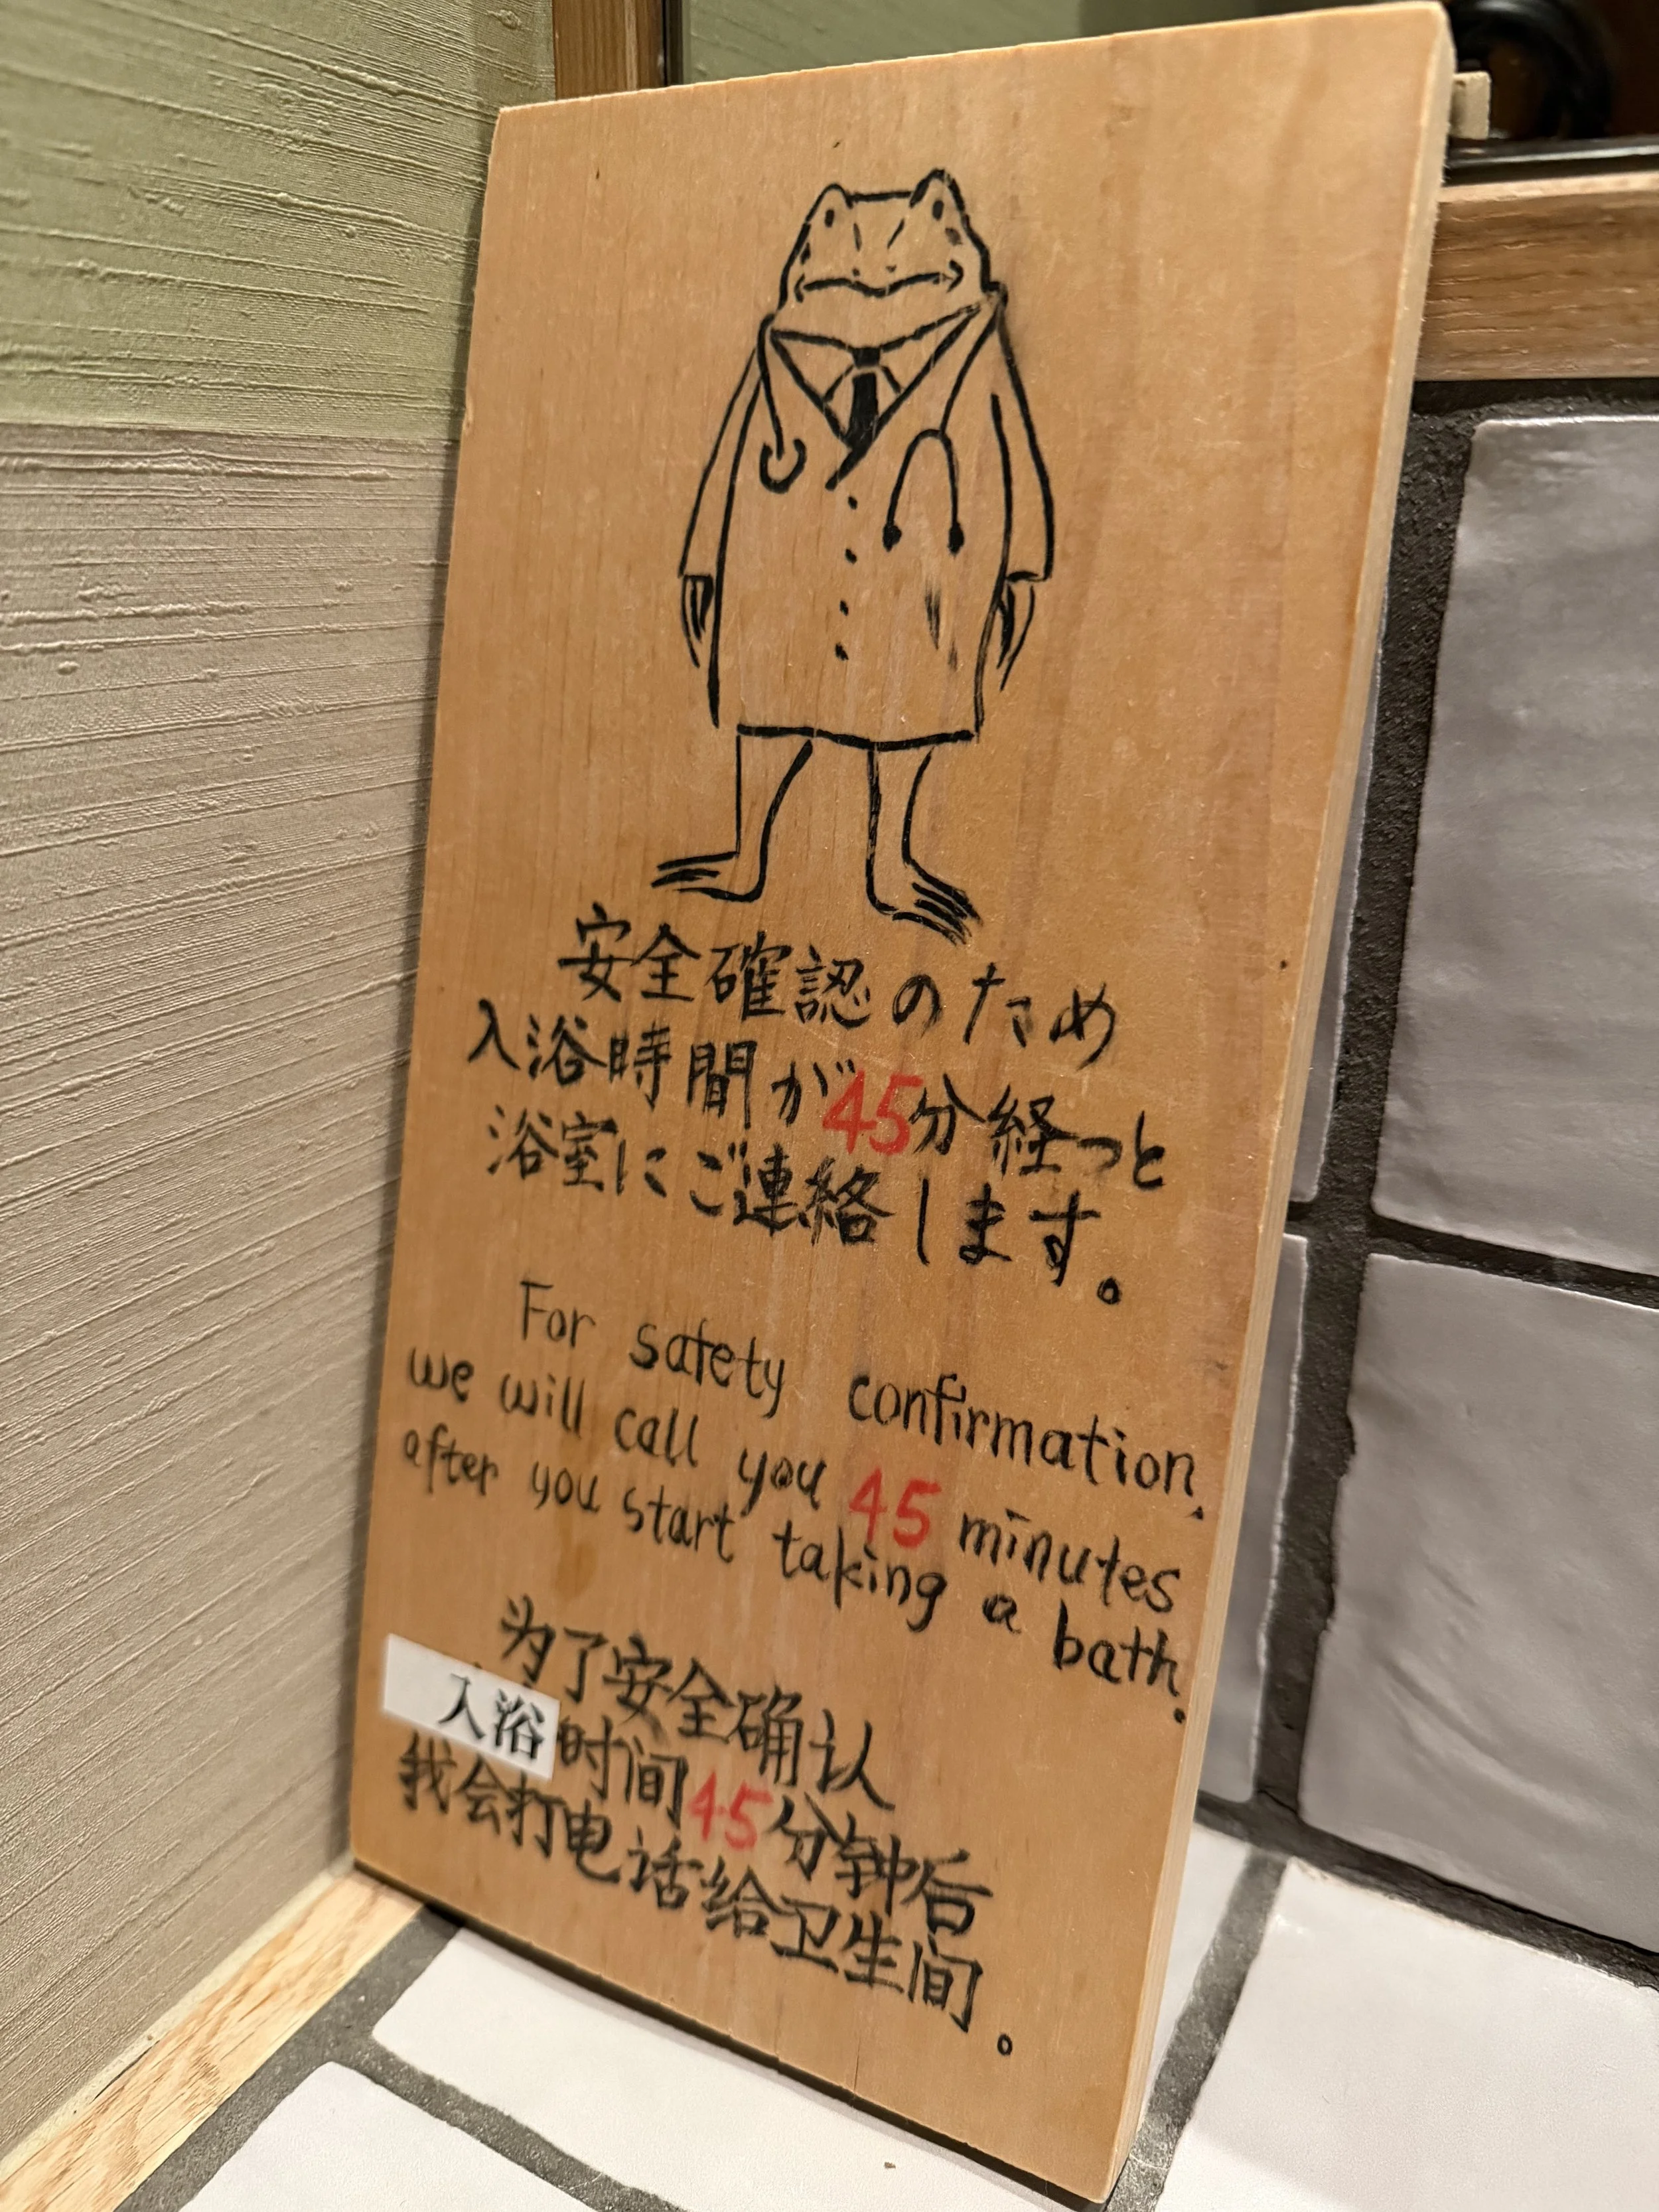 安全確認のため
入浴時間が45分経つと
浴室にご連絡します。
For safety confirmation,
we will call you 45 minutes
after you start taking a bath.
为了安全确认
入浴时间45分钟后
我会打电话给卫生间。